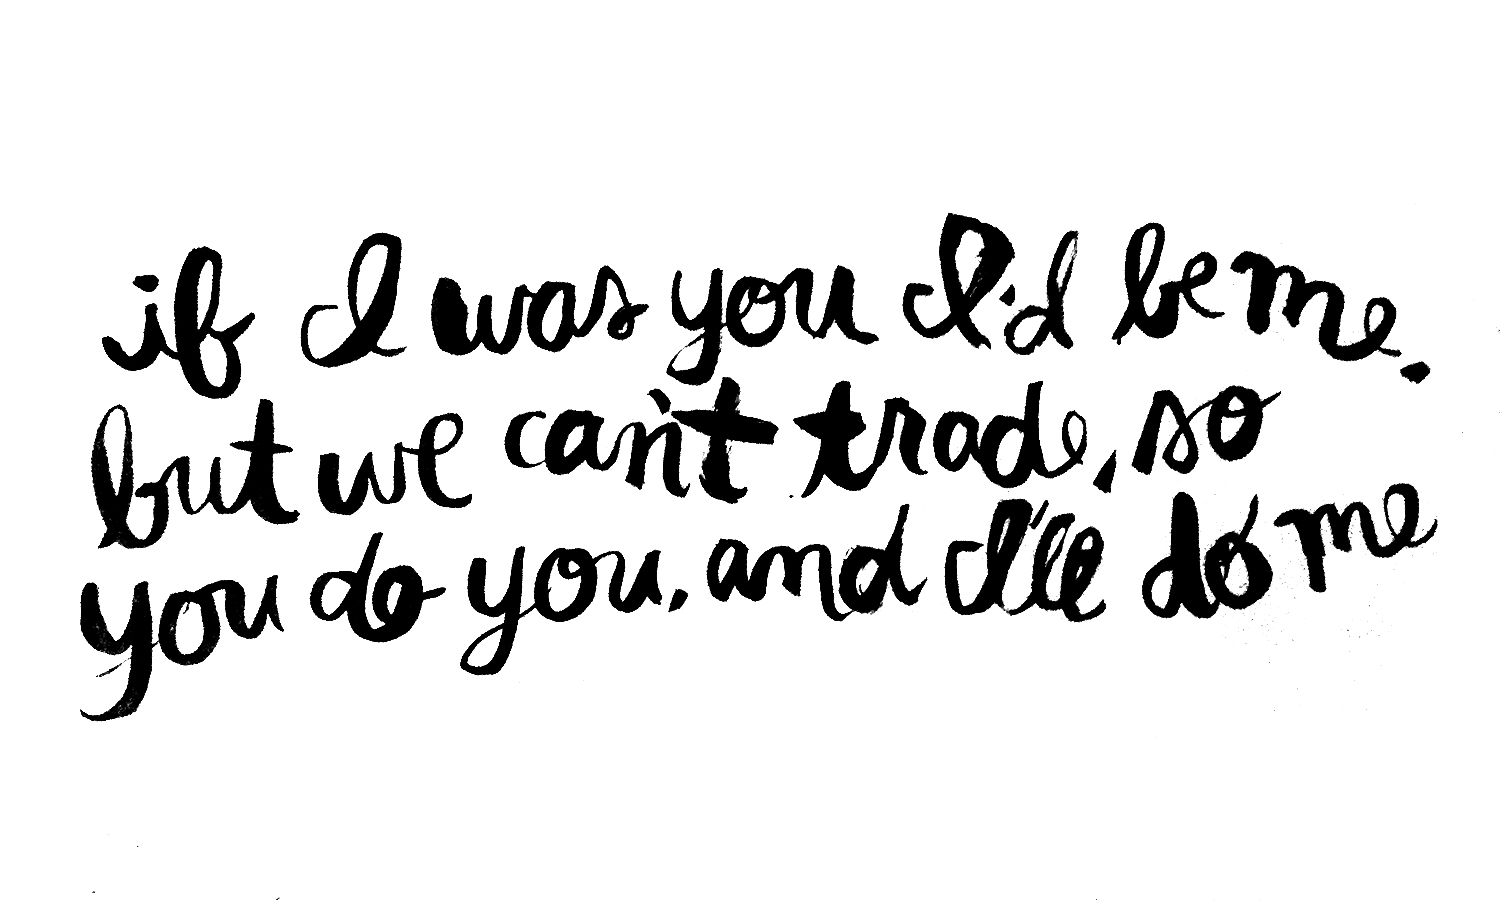 if I was you I'd be me.
but we can't trade, so
you do you, and I'll do me